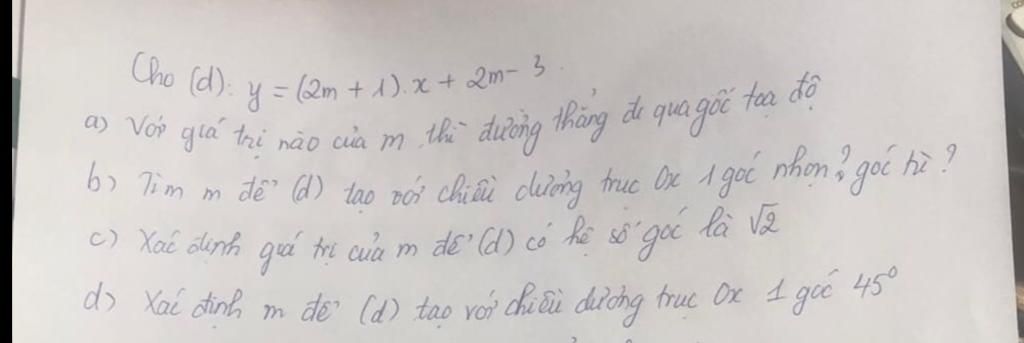 Cho (d): y = (2m + 1).x + 2m - 3.
a) Với giá trị nào của m thì đường thẳng đi qua gốc tọa độ
b) Tìm m để (d) tạo với chiều dương trục Ox 1 góc nhọn? góc tù?
c) Xác định giá trị của m để (d) có hệ số góc là √2
d) Xác định m để (d) tạo với chiều dương trục Ox 1 góc 45°